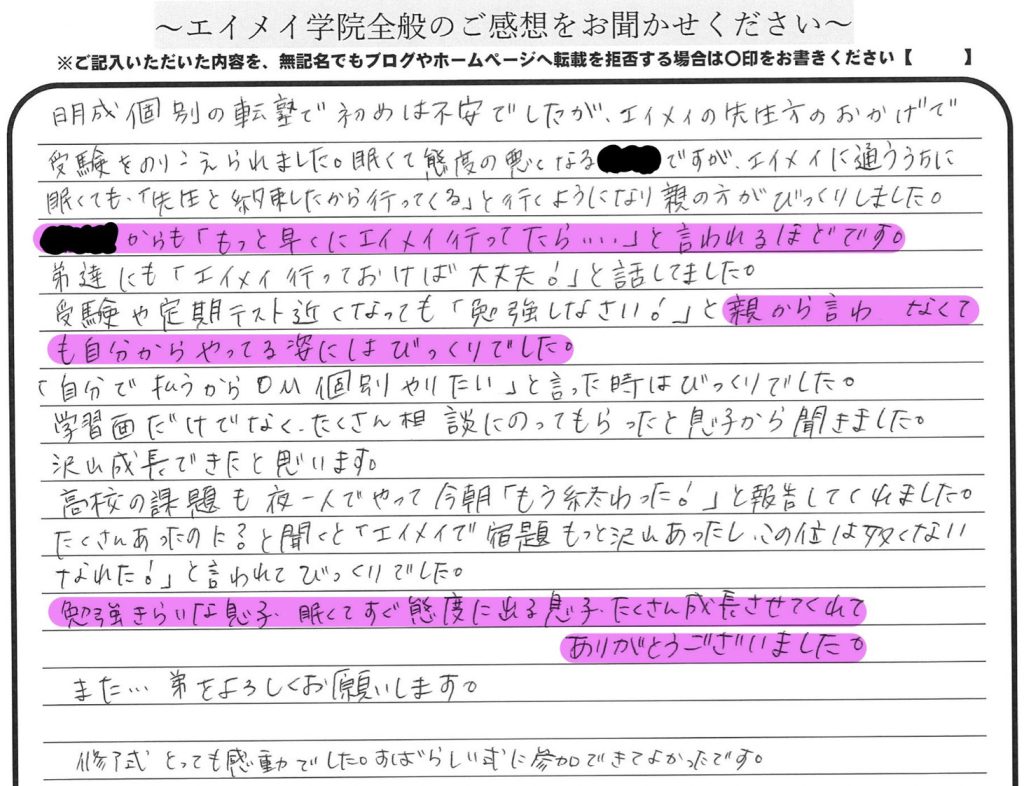 ～エイメイ学院全般のご感想をお聞かせください～
※ご記入いただいた内容を、無記名でもブログやホームページへ転載を拒否する場合は〇印をお書きください【　　】
明成個別の転塾で初めは不安でしたが、エイメイの先生方のおかげで
受験をのりこえられました。眠くて態度の悪くなる ですが、エイメイに通ううちに
眠くても、「先生と約束したから行ってくる」と行くようになり親の方がびっくりしました。
からも「もっと早くにエイメイ行ってたら‥‥」と言われるほどです。
弟達にも「エイメイ行っておけば大丈夫!」と話してました。
受験や定期テスト近くなっても「勉強しなさい!」と親から言わ なくて
も自分からやってる姿にはびっくりでした。
「自分で払うからDM個別やりたい」と言った時はびっくりでした。
学習面だけでなく、たくさん相談にのってもらったと息子から聞きました。
沢山成長できたと思います。
高校の課題も夜一人でやって今朝「もう終わった!」と報告してくれました。
たくさんあったのに?と聞くと「エイメイで宿題もっと沢山あったし、この位は多くない
なれた!」と言われてびっくりでした。
勉強きらいな息子、眠くてすぐ態度に出る息子、たくさん成長させてくれて
ありがとうございました。
また… 弟をよろしくお願いします。
修了式 とっても感動でした。すばらしい式に参加できてよかったです。